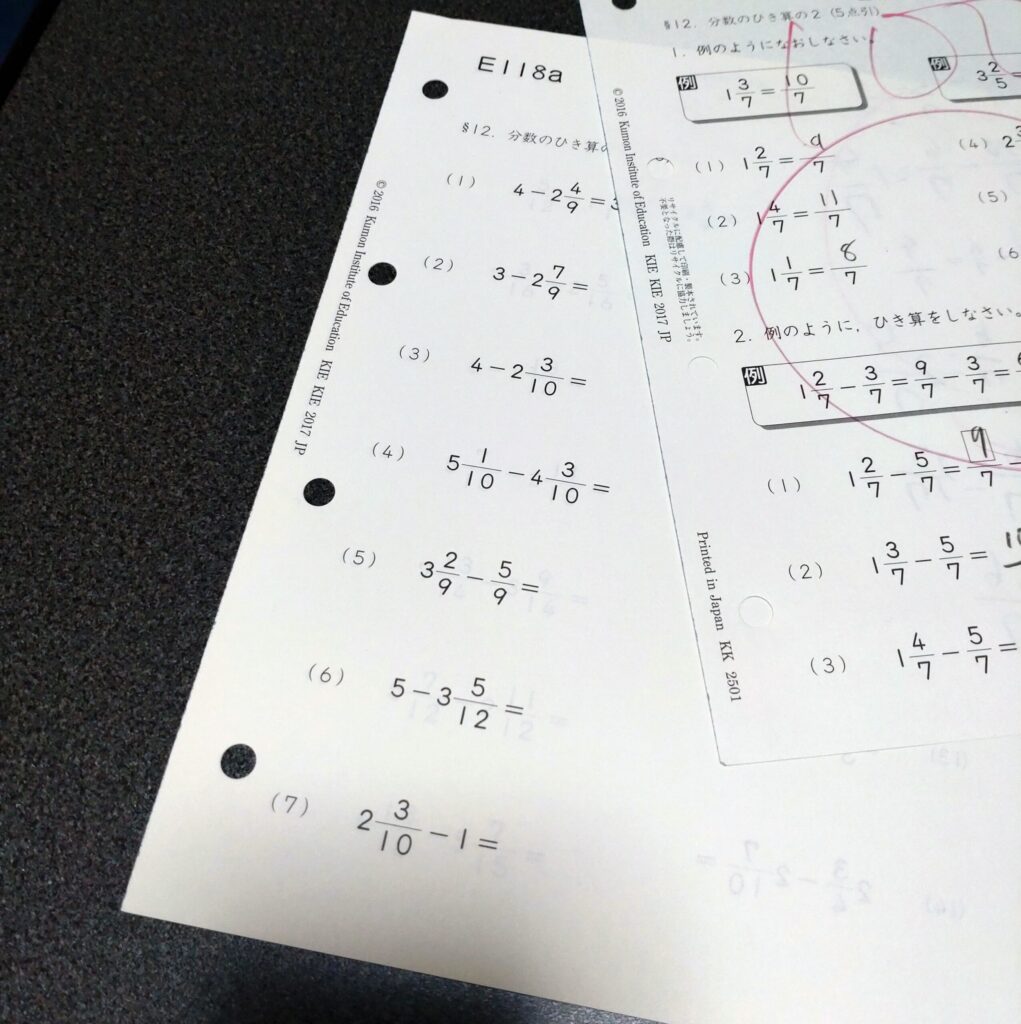 E118a
§12. 分数のひき算の
(1) 4 − 2 4/9 = 3
(2) 3 − 2 7/9 =
(3) 4 − 2 3/10 =
(4) 5 1/10 − 4 3/10 =
(5) 3 2/9 − 5/9 =
(6) 5 − 3 5/12 =
(7) 2 3/10 − 1 =
© 2016 Kumon Institute of Education KIE KIE 2017 JP
§12. 分数のひき算の2 (5点引)
1. 例のようになおしなさい。
例 1 3/7 = 10/7
例 3 2/5 =
(1) 1 2/7 = 9/7
(2) 1 4/7 = 11/7
(3) 1 1/7 = 8/7
(4) 2
(5)
(6
2. 例のように, ひき算をしなさい。
例 1 2/7 − 3/7 = 9/7 − 3/7 =
(1) 1 2/7 − 5/7 = 9/7 −
(2) 1 3/7 − 5/7 =
(3) 1 4/7 − 5/7 =
© 2016 Kumon Institute of Education KIE KIE 2017 JP
リサイクルに配慮して印刷・製本されています。
不要となった際はリサイクルに協力しましょう。
Printed in Japan KK 2501